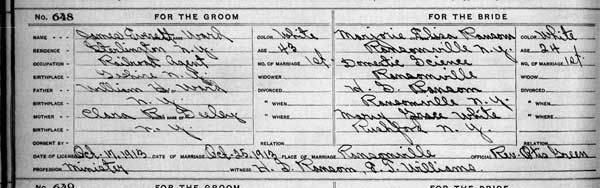 No. 648 FOR THE GROOM FOR THE BRIDE
NAME James Everett Ward COLOR White Marjorie Eliza Ransom COLOR White
RESIDENCE N.Y. AGE 43 Ransomville N.Y. AGE 24
OCCUPATION Railroad Agent NO. OF MARRIAGE 1st. Domestic Science NO. OF MARRIAGE 1st.
BIRTHPLACE N.Y. WIDOWER Ransomville WIDOW
FATHER William Ward DIVORCED H. S. Ransom DIVORCED
BIRTHPLACE N.Y. " WHEN Ransomville N.Y. " WHEN
MOTHER Clara B. Seeley " WHERE Mary Grace White " WHERE
BIRTHPLACE N.Y. Rushford N.Y.
CONSENT BY RELATION RELATION
DATE OF LICENSE Oct. 17, 1913 DATE OF MARRIAGE Oct. 25, 1913 PLACE OF MARRIAGE Ransomville OFFICIAL Rev. Otis Green
PROFESSION Ministry WITNESS H. S. Ransom E. J. Williams
No. 649 FOR THE GROOM FOR THE BRIDE